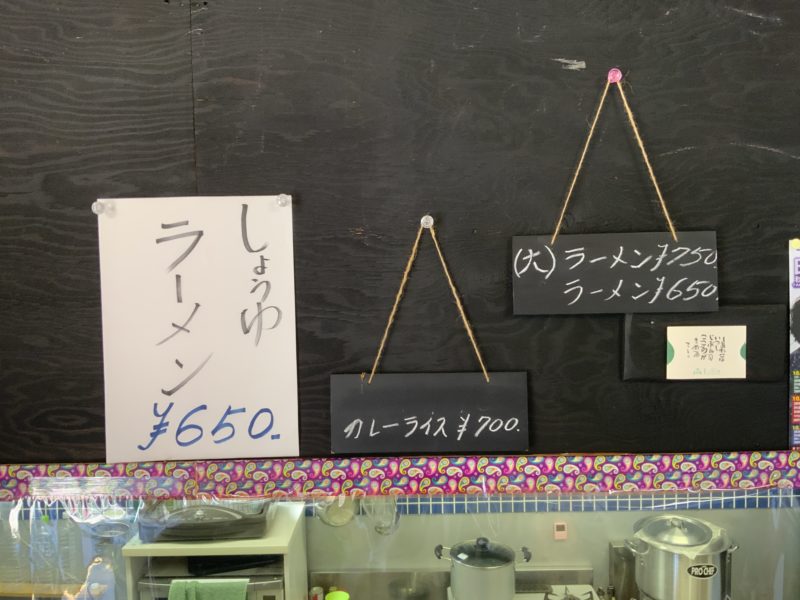 しょうゆ
ラーメン
¥650.
カレーライス ¥700.
(大) ラーメン ¥750.
ラーメン ¥650.
PRO CHEF